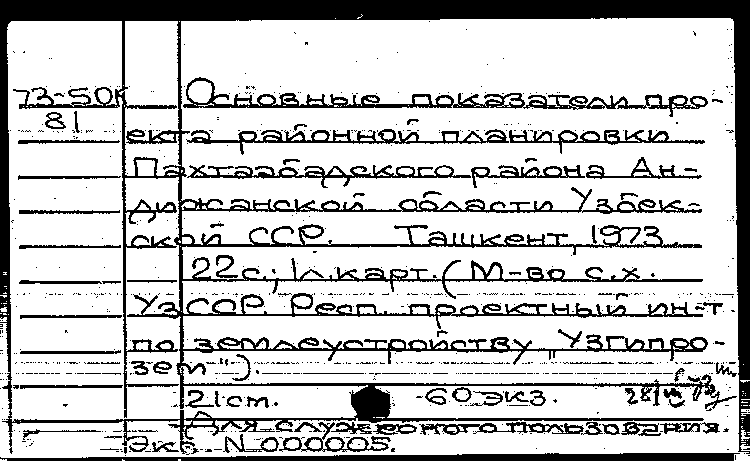 73-50К Основные показатели про-
81
екта районной планировки
Пахтаабадского района Ан-
дижанской области Узбек-
ской ССР. Ташкент, 1973.
22с.; 1л.карт. (М-во с.х.
УзССР. Респ. проектный ин-т
по землеустройству "Узгипро-
зем").
21ст. 60экз.
Для служебного пользования.
Экз. N 000005.